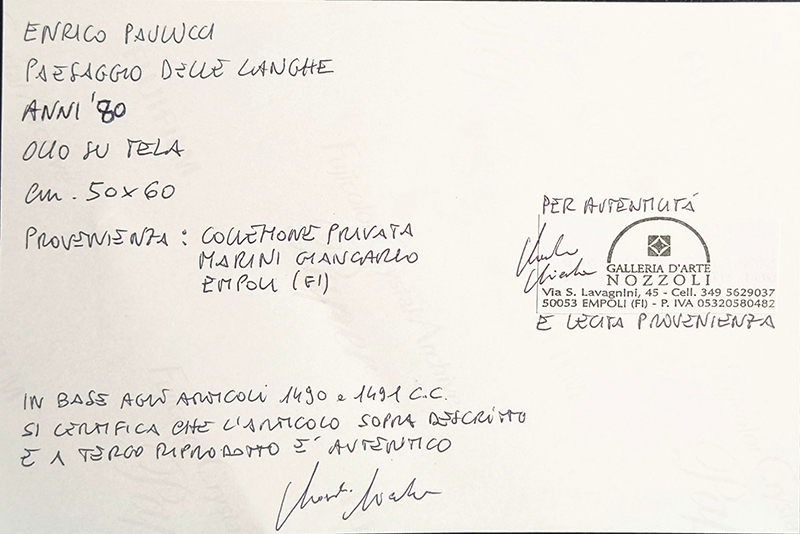 ENRICO PAULUCCI
PAESAGGIO DELLE LANGHE
ANNI '80
OLIO SU TELA
cm. 50x60
PROVENIENZA: COLLEZIONE PRIVATA
MARINI GIANCARLO
EMPOLI (FI)
PER AUTENTICITÁ
GALLERIA D'ARTE
NOZZOLI
Via S. Lavagnini, 45 - Cell. 349 5629037
50053 EMPOLI (FI) - P. IVA 05320580482
E LECITA PROVENIENZA
IN BASE AGLI ARTICOLI 1490 e 1491 C.C.
SI CERTIFICA CHE L'ARTICOLO SOPRA DESCRITTO
E A TERGO RIPRODOTTO E' AUTENTICO